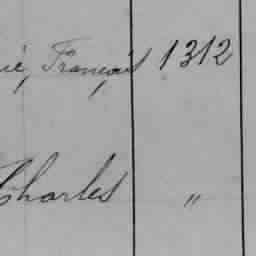 ié, François 1312
Charles "